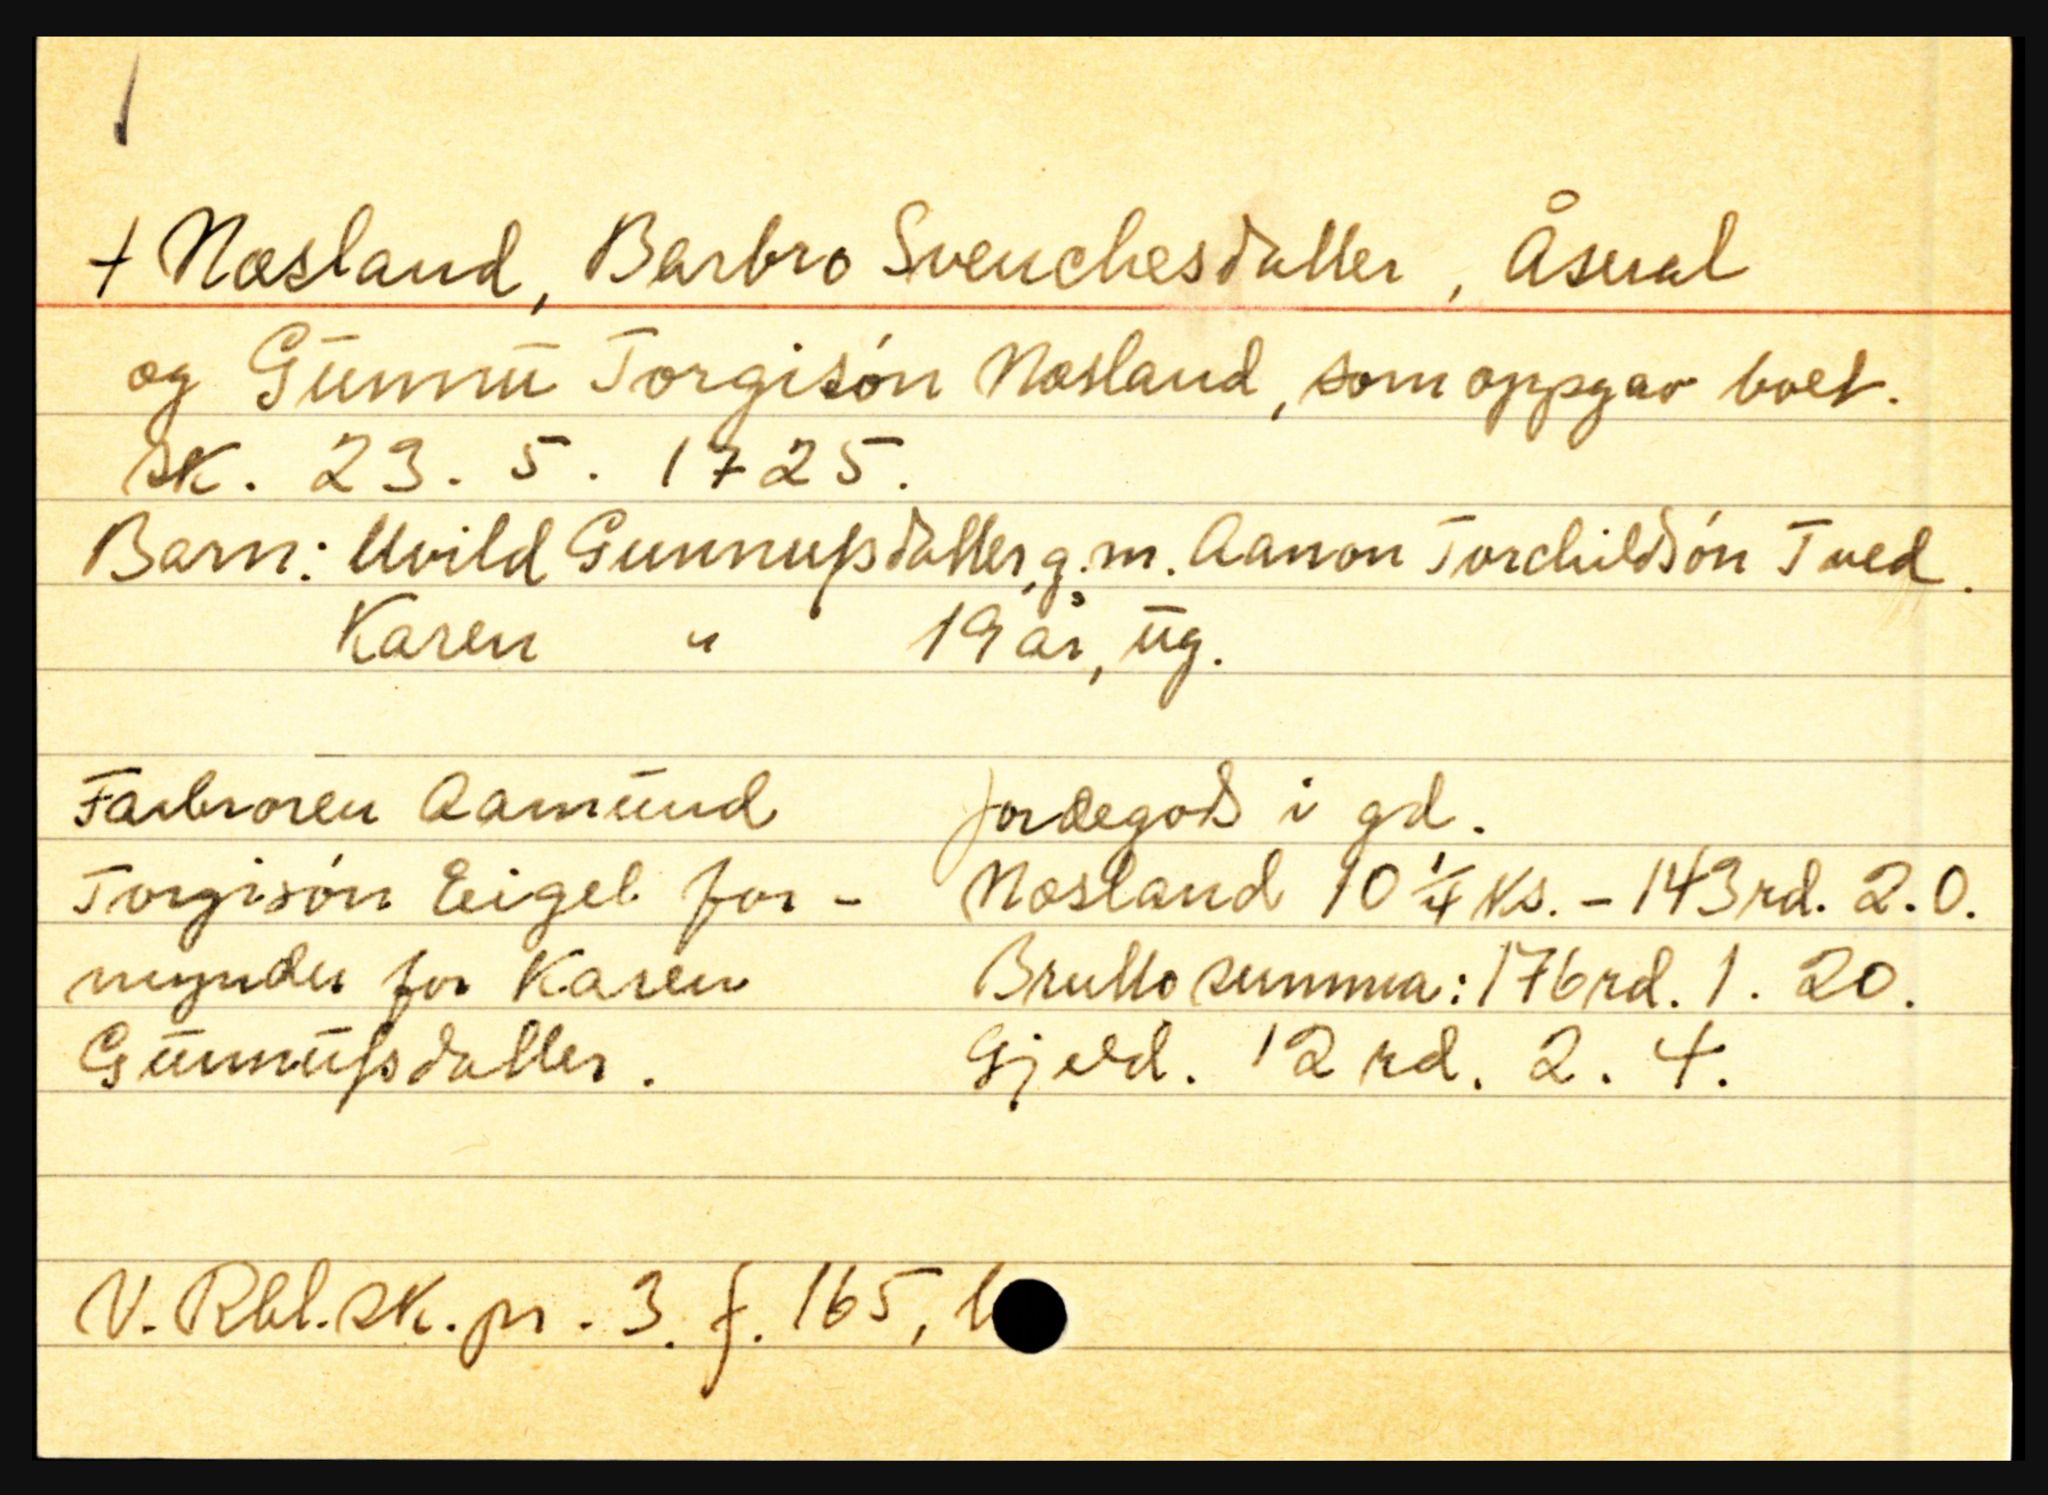 † Næsland, Barbro Svenchesdatter, Åseral
og Gunnu Torgisøn Næsland, som oppgav boet.
sk. 23. 5. 1725.
Barn: Uvild Gunnußdatter, g.m. Aanon Torchildsøn Tved.
Karen " 19 år, ug.
Farbroren Aamund
Torgisøn Eigel for-
mynder for Karen
Gunnußdatter.
Jordegods i gd.
Næsland 10 1/4 ks. - 143 rd. 2. 0.
Brutto summa: 176 rd. 1. 20.
Gjeld. 12 rd. 2. 4.
V. Rbl. sk. pr. 3. f. 165, b